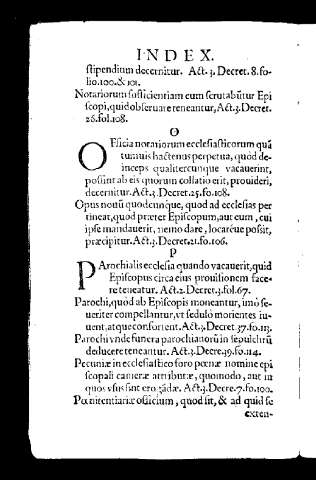 INDEX.
stipendium decernitur. Act. 3. Decret. 8. fo-
lio. 100. & 101.
Notariorum sufficientiam cum scrutabũtur Epi
scopi, quid obseruare teneantur, Act. 3. Decret.
26. fol. 108.
O
OFficia notariorum ecclesiasticorum quã
tumuis hactenus perpetua, quod de-
inceps qualitercunque vacauerint,
possint ab eis quorum collatio erit, prouideri,
decernitur. Act. 3. Decret. 25. fo. 108.
Opus nouũ quodcunque, quod ad ecclesias per
tineat, quod præter Episcopum, aut eum, cui
ipse mandauerit, nemo dare, locareúe possit,
præcipitur. Act. 3. Decret. 21. fo. 106.
P
PArochialis ecclesia quando vacauerit, quid
Episcopus circa eius prouisionem face-
re teneatur. Act. 2. Decret. 3. fol. 67.
Parochi, quòd ab Episcopis moneantur, imò se-
ueriter compellantur, vt sedulò morientes iu-
uent, atque confortent. Act. 3. Decret. 37. fo. 113.
Parochi vnde funera parochianorũ in sepulchrũ
deducere teneantur. Act. 3. Decre. 39. fo. 114.
Pecuniæ in ecclesiastico foro pœnæ nomine epi
scopali cameræ attributæ, quomodo, aut in
quos vsus sint erogãdæ. Act. 3. Decre. 7. fo. 100.
Pœnitentiariæ officium, quod sit, & ad quid se
exten-